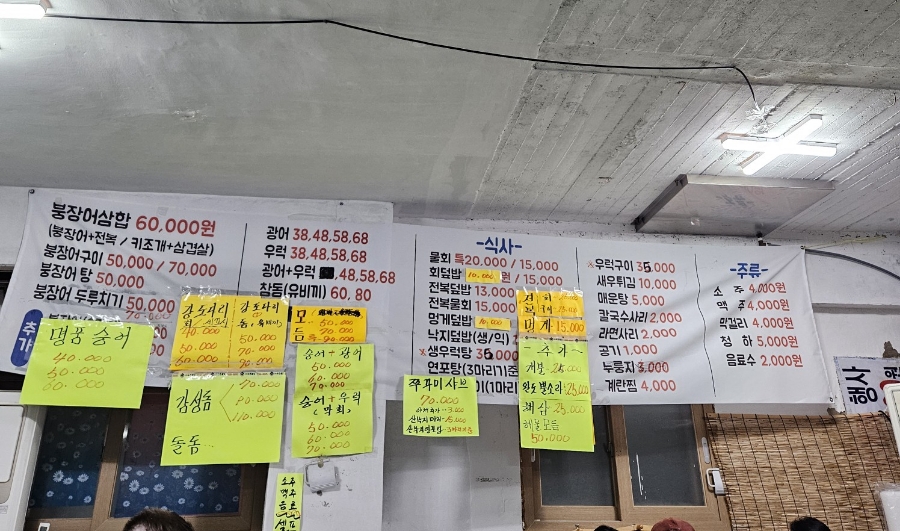 붕장어삼합 60,000원
(붕장어+전복 / 키조개+삼겹살)
붕장어구이 50,000 / 70,000
붕장어 탕 50,000
붕장어 두루치기 50,000
추가
광어 38,48,58,68
우럭 38,48,58,68
광어+우럭 48,58,68
참돔(유비끼) 60, 80
-식사-
물회 특20,000 / 15,000
회덮밥 10,000원 / 15,000
전복덮밥 13,000
전복물회 15,000
멍게덮밥
낙지덮밥(생/익)
※생우럭탕 35,000
연포탕(3마리기준
※우럭구이 35,000
새우튀김 10,000
매운탕 5,000
칼국수사리 2,000
라면사리 2,000
공기 1,000
누룽지 3,000
계란찜 4,000
-주류-
소 주 4,000원
맥 주 4,000원
막걸리 4,000원
청 하 5,000원
음료수 2,000원
행사
명품숭어
40.000
50.000
60.000
감성돔 70.000
90.000
110.000
돌돔
모
듬
숭어+광어
50.000
60.000
70.000
숭어+우럭
(막회)
50.000
60.000
70.000
쭈꾸미샤브
70.000
멍게 15,000
-추가-
개불 25,000
완도뿔소라-25,000
해삼 25,000
해물모듬
50.000
소주
맥주
음료
셀프